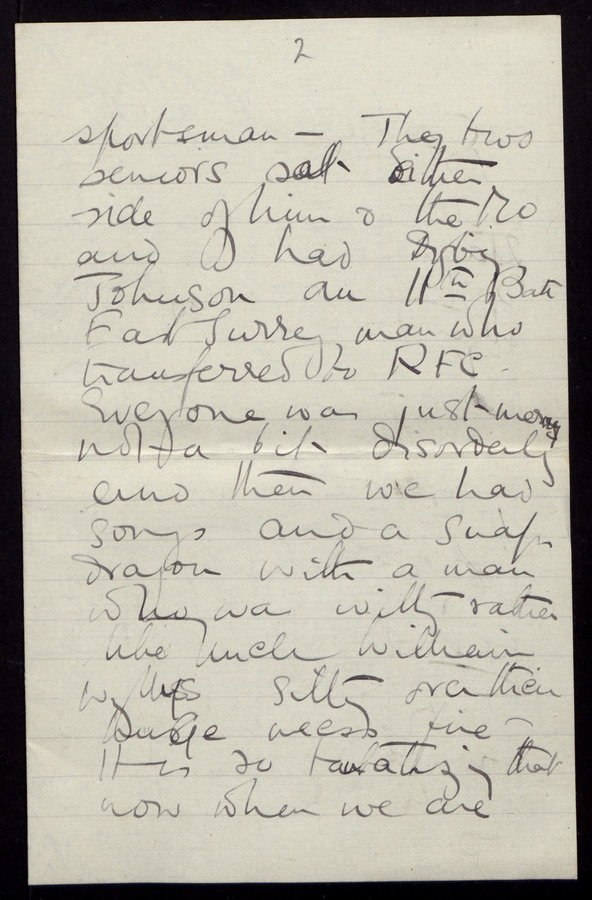 2
sportsman — They two
seniors sat either
side of him & the MO
and I had
Johnson an 11th Batt
East Surrey man who
transferred to RFC.
Everyone was just merry
not a bit disorderly
and then we had
songs and a snap
dragon with a man
who was witty rather
like Uncle William
sitting over their
huge mess fire —
It is so tantalizing that
now when we are